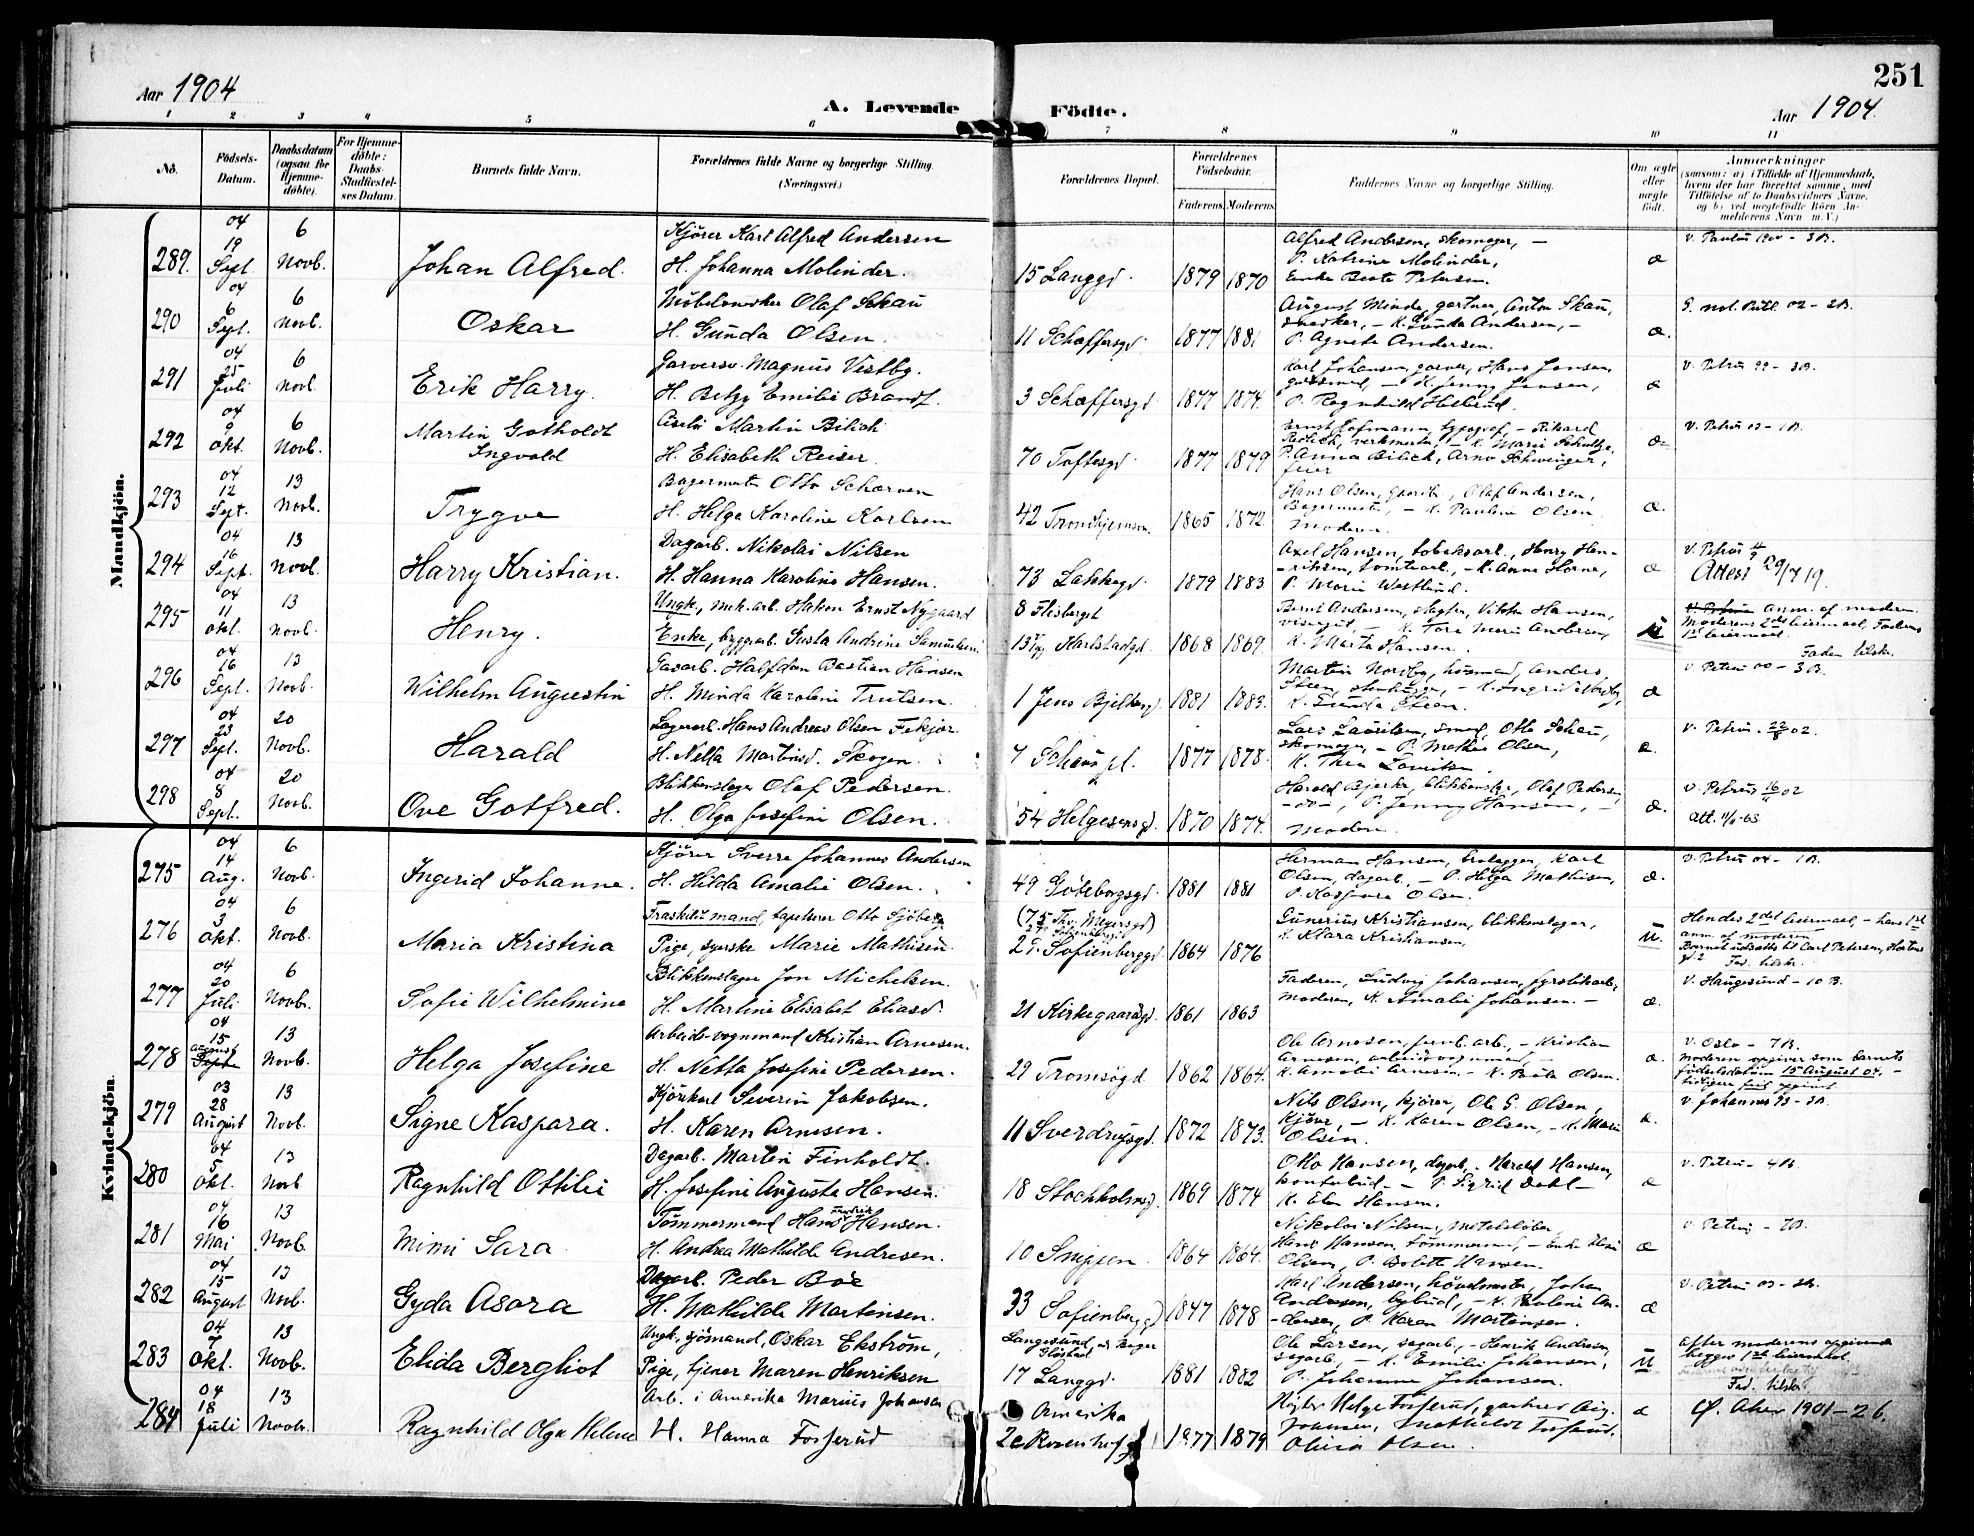 251
Aar 1904
A. Levende Födte.
Aar 1904.
1 2 3 4 5 6 7 8 9 10 11
No.
Födsels-Datum.
Daabsdatum (ogsaa for Hjemme-döbte).
For Hjemme-döbte: Daabs-Stadfæstel-ses Datum.
Barnets fulde Navn.
Forældrenes fulde Navne og borgerlige Stilling.
(Næringsvei.)
Forældrenes Bopæl.
Forældrenes Födselsaar.
Faderens. Moderens.
Faddernes Navne og borgerlige Stilling.
Om ægte eller uægte födt.
Anmærkninger
(saasom: a) i Tilfælde af Hjemmedaab, hvem der har forrettet samme, med Tilföielse af to Daabsvidners Navne, og b) ved uægtefödte Börn An-melderens Navn m. V.)
Mandkjön.
289. 04 19 Sept. 6 Novb. Johan Alfred. Kjörer Karl Alfred Andersen
H. Johanna Molinder. 15 Langgd. 1879 1870 Alfred Andersen, skomager, –
P. Katrine Molinder,
Enke Beate Petersen. æ V. Paulus 1900 – 3 B.
290 04 6 Sept. 6 Novb. Oskar Möbelsnedker Olaf Schau
H. Gunda Olsen. 11 Schæffersgd. 1877 1881 August Minde, gartner, Anton Skau,
snedker, – K. Gunda Andersen, –
P. Agneta Andersen. æ. 02 – 2 B.
291 04 25 Juli 6 Novb. Erik Harry. Garversv. Magnus Vestby.
H. Betzy Emilie Brandt. 3 Schæffersgd 1877 1874. Karl Johansen, garver, Hans Jensen,
– K. Jenny Jensen,
P. Ragnhild æ V. Petrus 99 – 3 B.
292 04 9 Okt. 6 Novb. Martin Gotholdt
Ingvald Martin Bilich
H. Elisabeth Reiser. 70 Toftesgd. 1877 1879 Ernst Hofmann, typograf, – Rikard
– K. Marie Schultze,
P. Anna Bilich, Arno Schwinger,
feier æ V. Petrus 03 – 1 B.
293 04 12 Sept. 13 Novb. Trygve Bagermester Otto Scharven
H. Helga Karoline Karlsen 42 Trondhjemsvn. 1865 1872 Hans Olsen, Olaf Andersen,
– K. Pauline Olsen,
Moderen. æ.
294 04 16 Sept. 13 Novb. Harry Kristian. Dagarb. Nikolai Nilsen
H. Hanna Karoline Hansen. 73 Lakkegd. 1879 1883 Axel Hansen, tobaksarb., Henry Hen-
-riksen, tomtearb., – K. Anna Horne,
P. Marie Westlund. æ V. Petrus
Attest 29/7 19.
295 04 11 Okt. 13 Novb. Henry. Ungk., mek. arb. Hakon Ernst Nygaard
Enke, Susta Andrine Samuelsen. 8 Flisberget
13 Karlstadgd. 1868 1869. Bernt Andersen, slagter, Viktor Hansen,
– K. Tora Marie Andersen,
K. Marta Hansen. u anm. af moderen.
Moderens 2det leiermaal, Faderens
1st leiermaal.
Faden tilst.
296 04 16 Sept. 13 Novb. Wilhelm Augustin Gasarb. Halfdan Bastian Hansen
H. Minda Karoline Trulsen. 1 Jens Bjelkesgd. 1881 1883. Martin Norsby, Anders
Steen, – K. Ingrid Norsby,
K. Gunda Steen. æ V. Petrus 00 – 3 B.
297 04 23 Sept. 20 Novb. Harald Lagerarb. Hans Andreas Olsen Fekjær.
H. Netta Martinsd. Skogen. 7 Schous pl. 1877 1878. Lars Lauritsen, smed, Otto Schau,
skomager, – P. Mathea Olsen,
K. Thea Lauritsen. æ. V. Petrus 02.
298 04 8 Sept. 20 Novb. Ove Gotfred. Blikkenslager Olaf Pedersen.
H. Olga Josefine Olsen. 54 Helgesensgd. 1870 1874. Harald Bjerke, blikkenslgr, Olaf Pedersen,
– do –, P. Jenny Hansen, –
Moderen. æ. V. Petrus 02
Kvindekjön.
275 04 14 Aug. 6 Novb. Ingerid Johanne. Kjörer Sverre Johannes Andersen
H. Hilda Amalie Olsen. 49 Göteborgsgd. 1881 1881 Herman Hansen, brolægger, Karl
Olsen, dagarb., – P. Helga Mathisen,
P. Kaspara Olsen. æ. V. Petrus 04 – 1 B.
276 04 3 Okt. 6 Novb. Maria Kristina Fraskilt mand, tapetserer Otto Sjöberg
Pige, syerske Marie Mathisen. (75 Thv. Meyersgd)
Sofienberggd. 1864 1876 Gunerius Kristiansen, blikkenslager,
K. Klara Kristiansen. u. Hendes 2det leiermaal, – hans 1st
anm. af moderen
Barnet udsattes til Carl Petersen,
Fad. tilst.
277 04 20 Juli 6 Novb. Sofie Wilhelmine Blikkenslager Jon Michelsen.
H. Martine Elisabet Eliasd. 21 Kirkegaardsgd. 1861 1863 Faderen, Ludvig Johansen, fyrstikarb.,
Moderen, K. Amalie Johansen. – æ. V. Haugesund – 10 B.
278 04 15 August 13 Novb. Helga Josefine Arbeids-vognmand Kristian Arnesen.
H. Netta Josefine Pedersen. 29 Tromsögd 1862 1864. Ole Arnesen, arb., – Kristian
Arnesen, arbeidsvognmand, –
K. Amalie Arnesen – K. Olsen. æ. V. Oslo – 7 B.
Moderen opgiver som barnets
födselsdatum 15 August 04. –
279 03 28 August 13 Novb. Signe Kaspara. Kjörekarl Severin Jakobsen.
H. Karen Arnesen. 11 Sverdrupsgd. 1872 1873. Nils Olsen, kjörer, Ole G. Olsen,
kjörer, – K. Karen Olsen, – K. Marie
Olsen. æ. V. Johannes 93 – 3 B.
280 04 5 Okt. 13 Novb Ragnhild Ottilie Dagarb. Martin Finholdt.
H. Josefine Augusta Hansen. 18 Stockholmsgd. 1869 1874 Otto Hansen, dagarb, – Harald Hansen,
kontorbud. – P. Sigrid Dahl –
K. Hansen. æ V. Petrus – 4 B.
281 04 16 Mai 13 Novb. Mimi Sara Tömmermand Hans Fredrik Hansen.
H. Andrea Mathilde Andresen. 10 Snippen 1864 1864. Nikolai Nilsen,
Hans Hansen, tömmermand, – Enke
Olsen, P. Bolette Hansen. æ V. Petrus – 7 B.
282 04 15 August 13 Novb. Gyda Asora Dagarb. Peder Boe
H. Mathilde Martinsen. 33 Sofienberggd 1847 1878 Karl Andersen, hövelmester, Johan
Andersen, bybud, – K. Pauline An-
-dersen, P. Karen Martinsen. æ V. Petrus 03 – 2 B.
283 04 7 Okt. 13 Novb. Elida Bergliot Ungk., sjömand, Oskar Ekström,
Pige, tjener Maren Henriksen Langesund,
17 Langgd. 1881 1882 Ole Larsen, sagarb., – Henrik Andersen,
sagarb., – K. Emilie Johansen,
P. Johanne Johansen. u Efter moderens opgivende
begges 1st leiermaal.
Fad. tilst.
284 04 18 Juli 13 Novb. Ragnhild Olga Helene Arb. i Amerika Marius Johansen
H. Hanna Fosserud Amerika
1877 1879 Helge Fosserud, Aug.
Johansen, Mathilde Fosserud.
Olsen. æ Aker 1901 – 2 B.